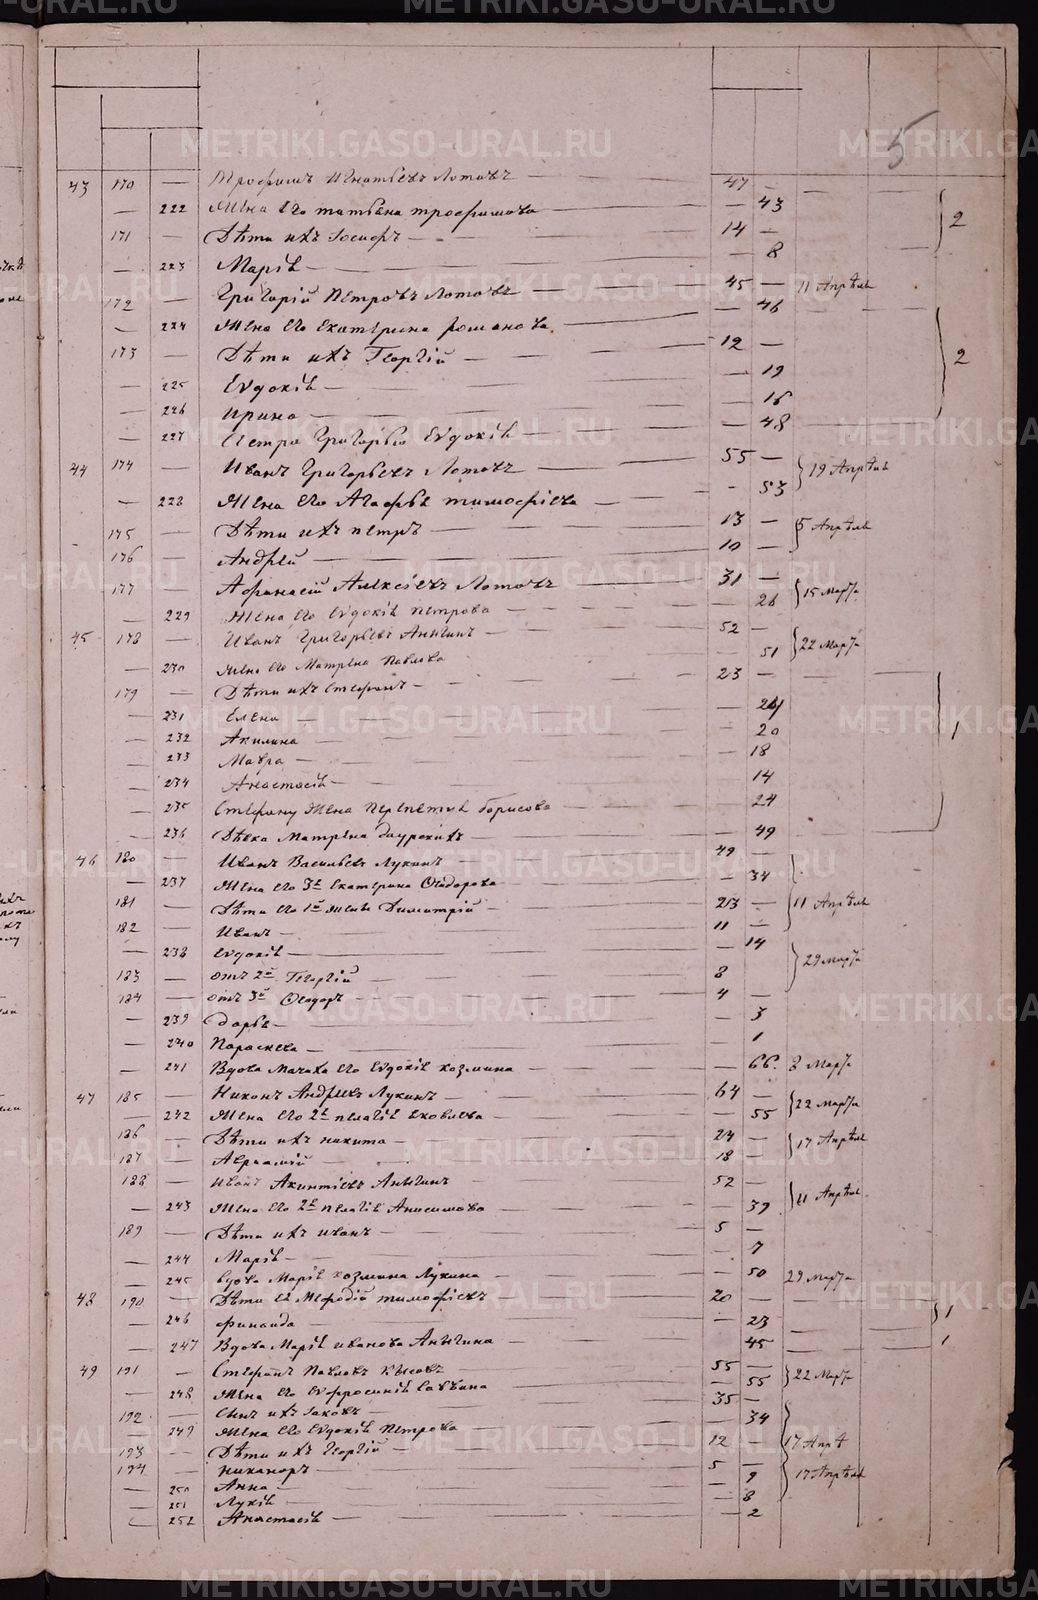 5
43 170 — Трофимъ Игнатьевъ Лотовъ — 47 —
— 222 Жена его татьяна трофимова — 43 2
171 — Дѣти ихъ Іосифъ — 14 —
— 223 Марія — 8
172 — Григорій Петровъ Лотовъ — 45 — 11 Апрѣля
— 224 Жена его екатерина романова — 46
173 — Дѣти ихъ Георгій — 12 — 2
— 225 Евдокія — 19
— 226 Ирина — 16
— 227 Сестра Григорья Евдокія — 48
44 174 — Иванъ Григорьевъ Лотовъ — 55 — 19 Апрѣля
— 228 Жена его Агафья тимофіева — 53
175 — Дѣти ихъ петръ — 13 — 5 Апрѣля
176 — Андрей — 10 —
177 — Афанасій Алексіевъ Лотовъ — 31 — 15 Марта
— 229 Жена его евдокія петрова — 26
45 178 — Иванъ Григорьевъ Аничинъ — 52 — 22 Марта
— 230 Жена его Матрена Павлова — 51
179 — Дѣти ихъ Стефанъ — 23 —
— 231 Елена — 24
— 232 Акилина — 20 1
— 233 Мавра — 18
— 234 Анастасія — 14
— 235 Стефану жена Перепетуя борисова — 24
— 236 Дѣвка Матрена даурскихъ — 49
46 180 — Иванъ Васильевъ Лукинъ — 49 —
— 237 Жена его 3я Екатерина Ѳеодорова — 34
181 — Дѣти его 1й жены Димитрій — 23 — 11 Апрѣля
182 — Иванъ — 11 —
— 238 Евдокія — 14
183 — отъ 2й Георгій — 8 29 Марта
184 — отъ 3й Ѳеодоръ — 4 —
— 239 дарья — 3
— 240 Параскева — 1
— 241 Вдова Мачиха его Евдокія козмина — 66. 8 Марта
47 185 — Никонъ Андреевъ Лукинъ — 64 — 22 Марта
— 242 Жена его 2я пелагія яковлева — 55
186 — Дѣти ихъ никита — 24 — 17 Апрѣля
187 — Авраамій — 18 —
188 — иванъ Акинтіевъ Аничинъ — 52 — 11 Апрѣля
— 243 Жена его 2я пелагія Анисимова — 39
189 — Дѣти ихъ иванъ — 5 —
— 244 Марія — 7
— 245 вдова Марія козмина Лукина — 50 29 Марта
48 190 — Дѣти ея Мефодій тимофіевъ — 20 — 1
— 246 финаида — 23
— 247 Вдова Марія иванова Аничина — 45 — 1
49 191 — Стефанъ Павловъ Кысовъ — 55 — 22 Марта
— 248 Жена его Евфросинія Саввина — 55
192 — Сынъ ихъ Іаковъ — 35 —
— 249 Жена его Евдокія Петрова — 34
193 — Дѣти ихъ Георгій — 12 — 17 Апрѣ
194 — никаноръ — 5 — 17 Апрѣля
— 250 Анна — 9
— 251 Лукія — 8
— 252 Анастасія — 2
METRIKI.GASO-URAL.RU